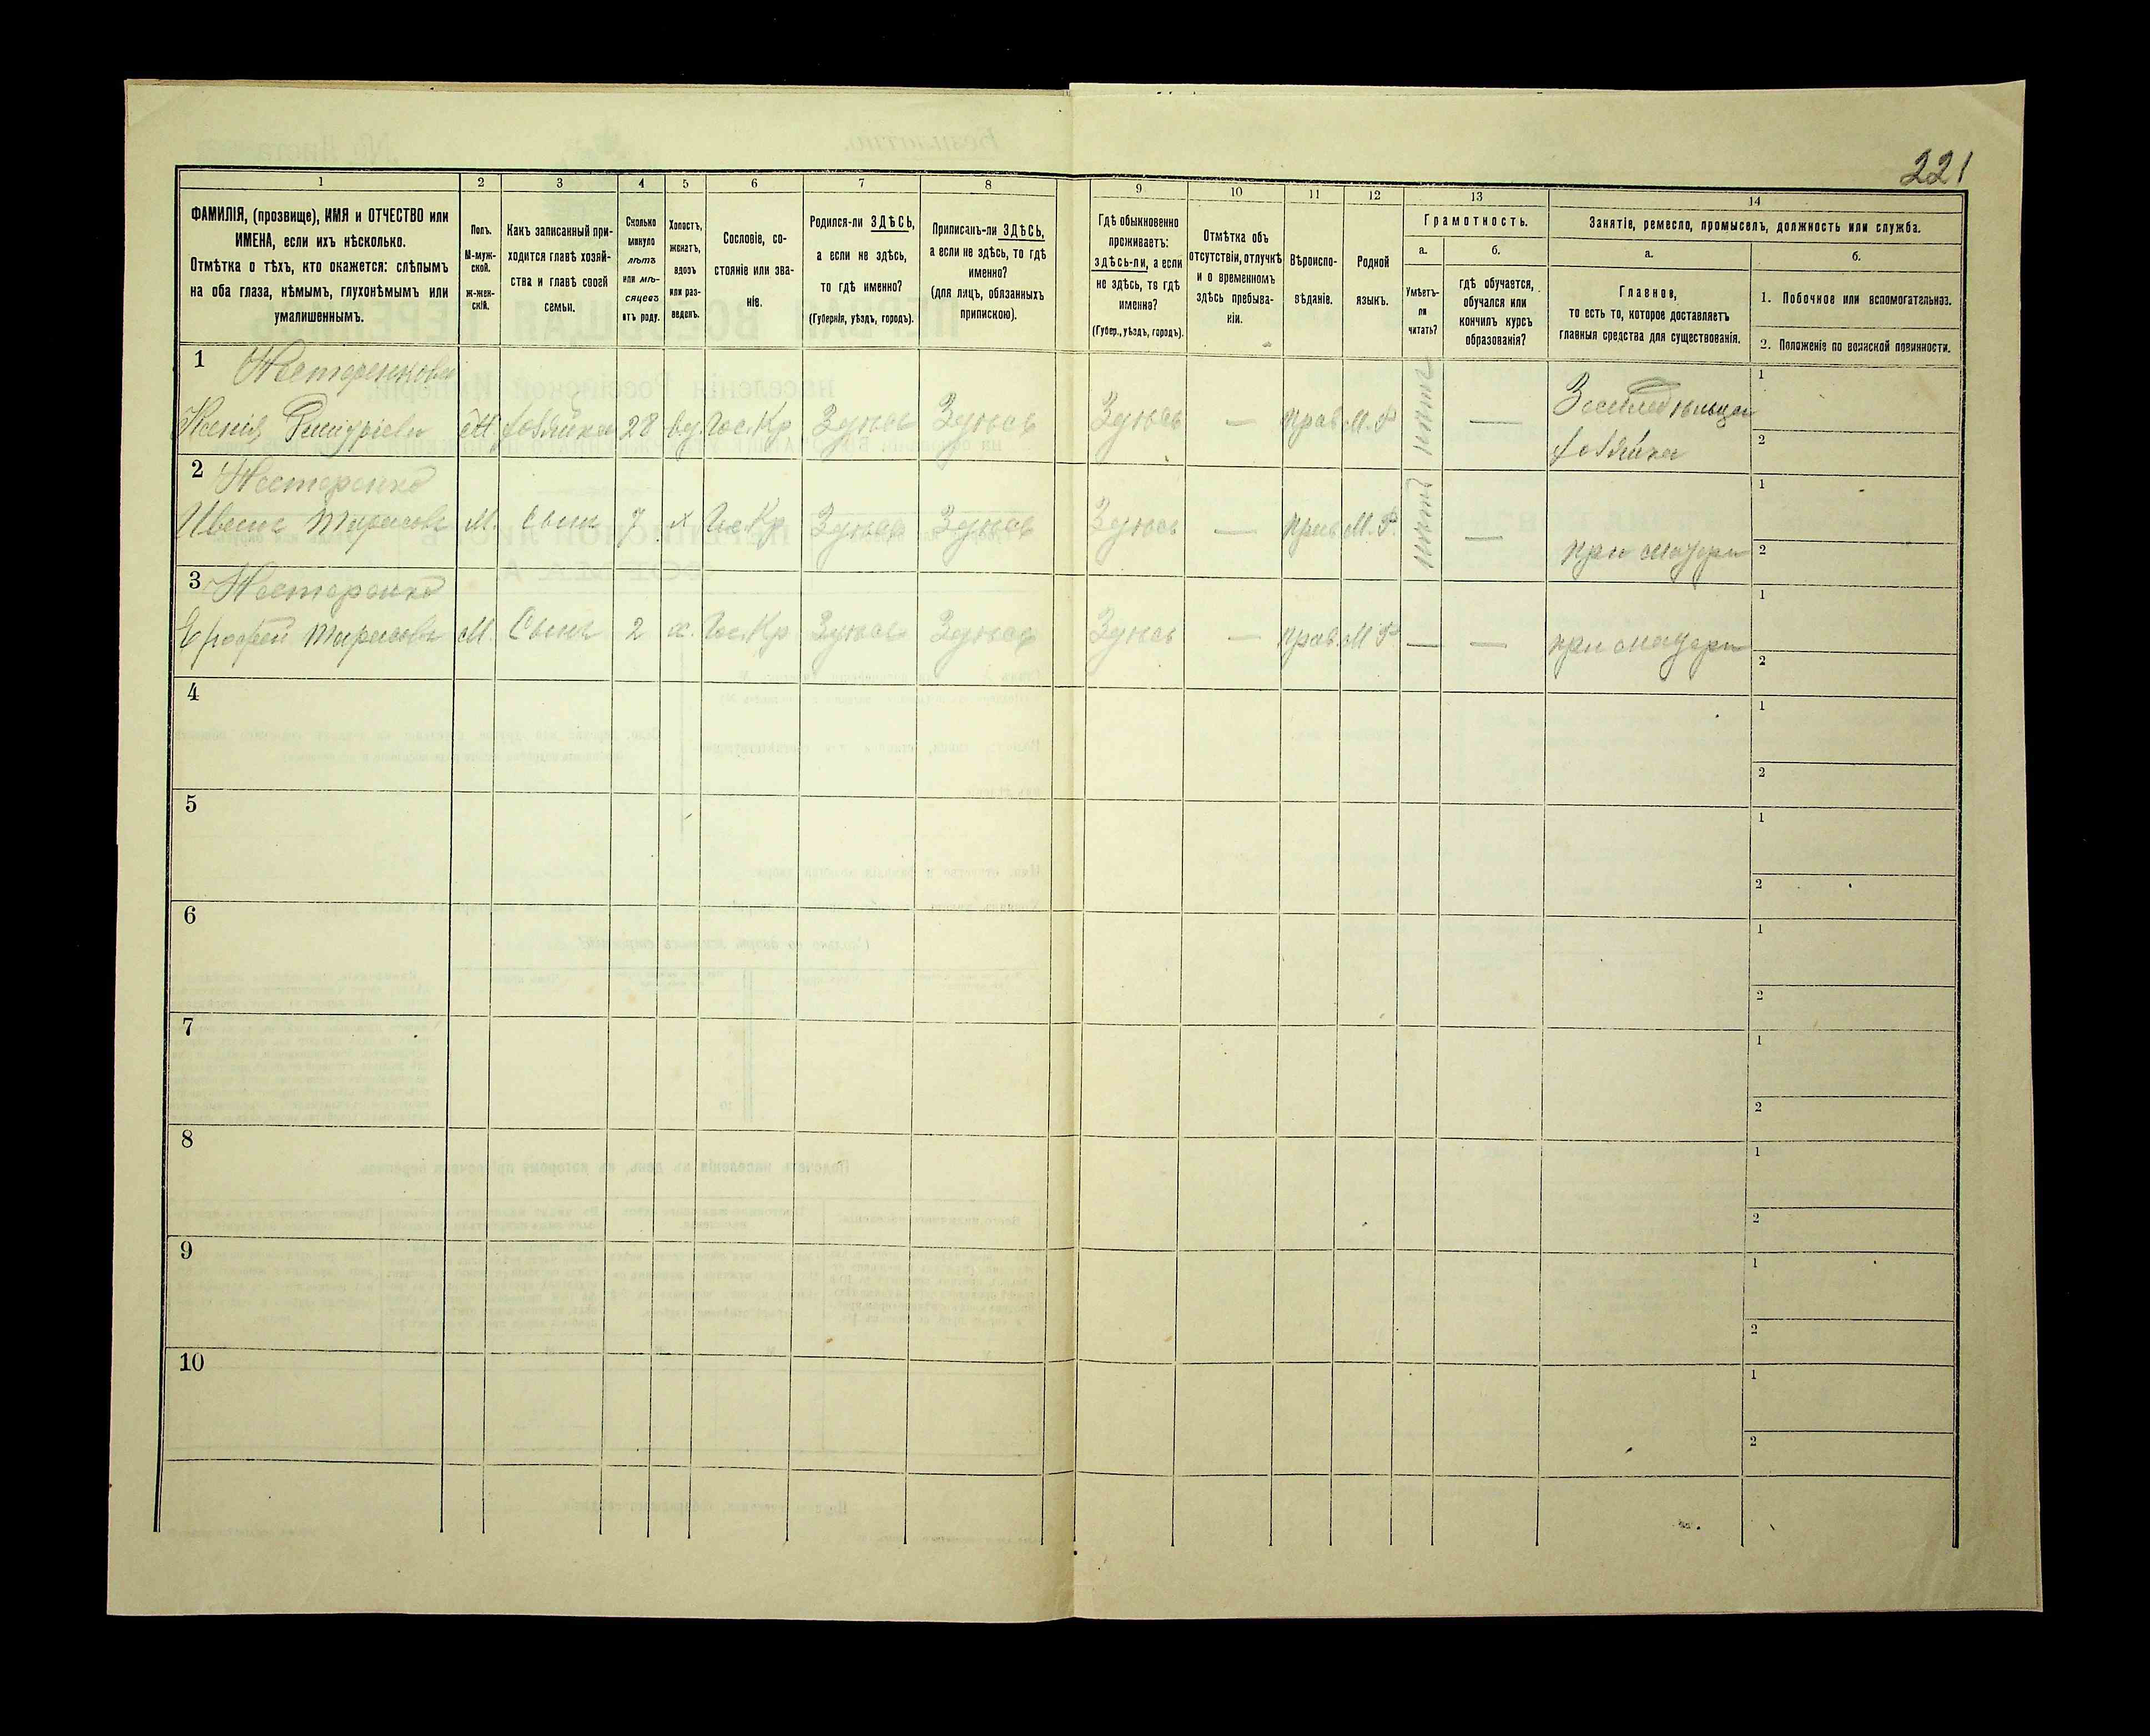 221
1 2 3 4 5 6 7 8 9 10 11 12 13 14
ФАМИЛІЯ, (прозвище), ИМЯ и ОТЧЕСТВО или
ИМЕНА, если ихъ нѣсколько.
Отмѣтка о тѣхъ, кто окажется: слѣпымъ
на оба глаза, нѣмымъ, глухонѣмымъ или
умалишеннымъ.
Полъ.
М-муж-
ской.
ж-жен-
скій.
Какъ записанный при-
ходится главѣ хозяй-
ства и главѣ своей
семьи.
Сколько
минуло
лѣтъ
или мѣ-
сяцевъ
отъ роду.
Холостъ,
женатъ,
вдовъ
или раз-
веденъ.
Сословіе, со-
стояніе или зва-
ніе.
Родился-ли ЗДѢСЬ,
а если не здѣсь,
то гдѣ именно?
(Губернія, уѣздъ, городъ).
Приписанъ-ли ЗДѢСЬ,
а если не здѣсь, то гдѣ
именно?
(для лицъ, обязанныхъ
припискою).
Гдѣ обыкновенно
проживаетъ:
здѣсь-ли, а если
не здѣсь, то гдѣ
именно?
(Губер., уѣздъ, городъ).
Отмѣтка объ
отсутствіи, отлучкѣ
и о временномъ
здѣсь пребыва-
ніи.
Вѣроиспо-
вѣданіе.
Родной
языкъ.
Грамотность.
а.
Умѣетъ-
ли
читать?
б.
гдѣ обучается,
обучался или
кончилъ курсъ
образованія?
Занятіе, ремесло, промыселъ, должность или служба.
а.
Главное,
то есть то, которое доставляетъ
главныя средства для существованія.
б.
1. Побочное или вспомогательное.
2. Положеніе по воинской повинности.
1 Нестеренкова
Ксенія Ж хозяйка 28 вд. Гос. Кр Здѣсь Здѣсь Здѣсь — прав М. Р нѣтъ — Земледѣлица
хозяйка
1
2
2 Нестеренко
Иванъ Тарасовъ М. Сынъ 7 х Гос. Кр Здѣсь Здѣсь Здѣсь — прав М. Р. нѣтъ — при матери
1
2
3 Нестеренко
Ерофей Тарасовъ М. Сынъ 2 х. Гос. Кр Здѣсь Здѣсь Здѣсь — прав. М Р — — при матери
1
2
4
1
2
5
1
2
6
1
2
7
1
2
8
1
2
9
1
2
10
1
2